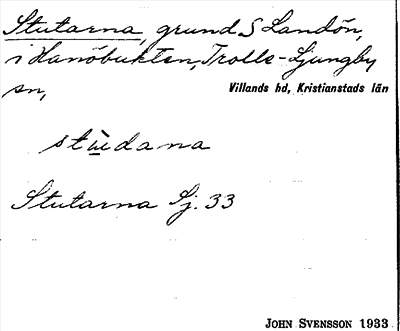 Stutarna, grund S Landön,
i Hanöbukten, Trolle-Ljungby
sn, Villands hd, Kristianstads län
stùdana
Stutarna Sj. 33
JOHN SVENSSON 1933